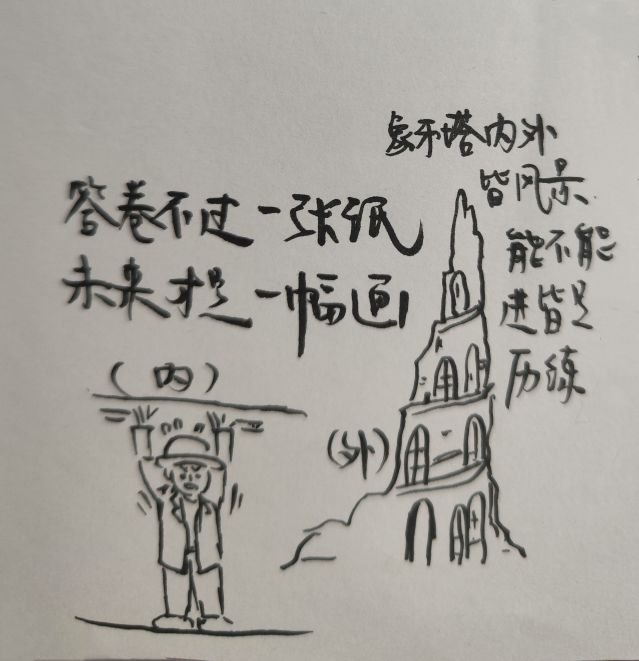 象牙塔内外
皆风景
能不能
进皆是
历练
答卷不过一张纸
未来才是一幅画
（内）
（外）